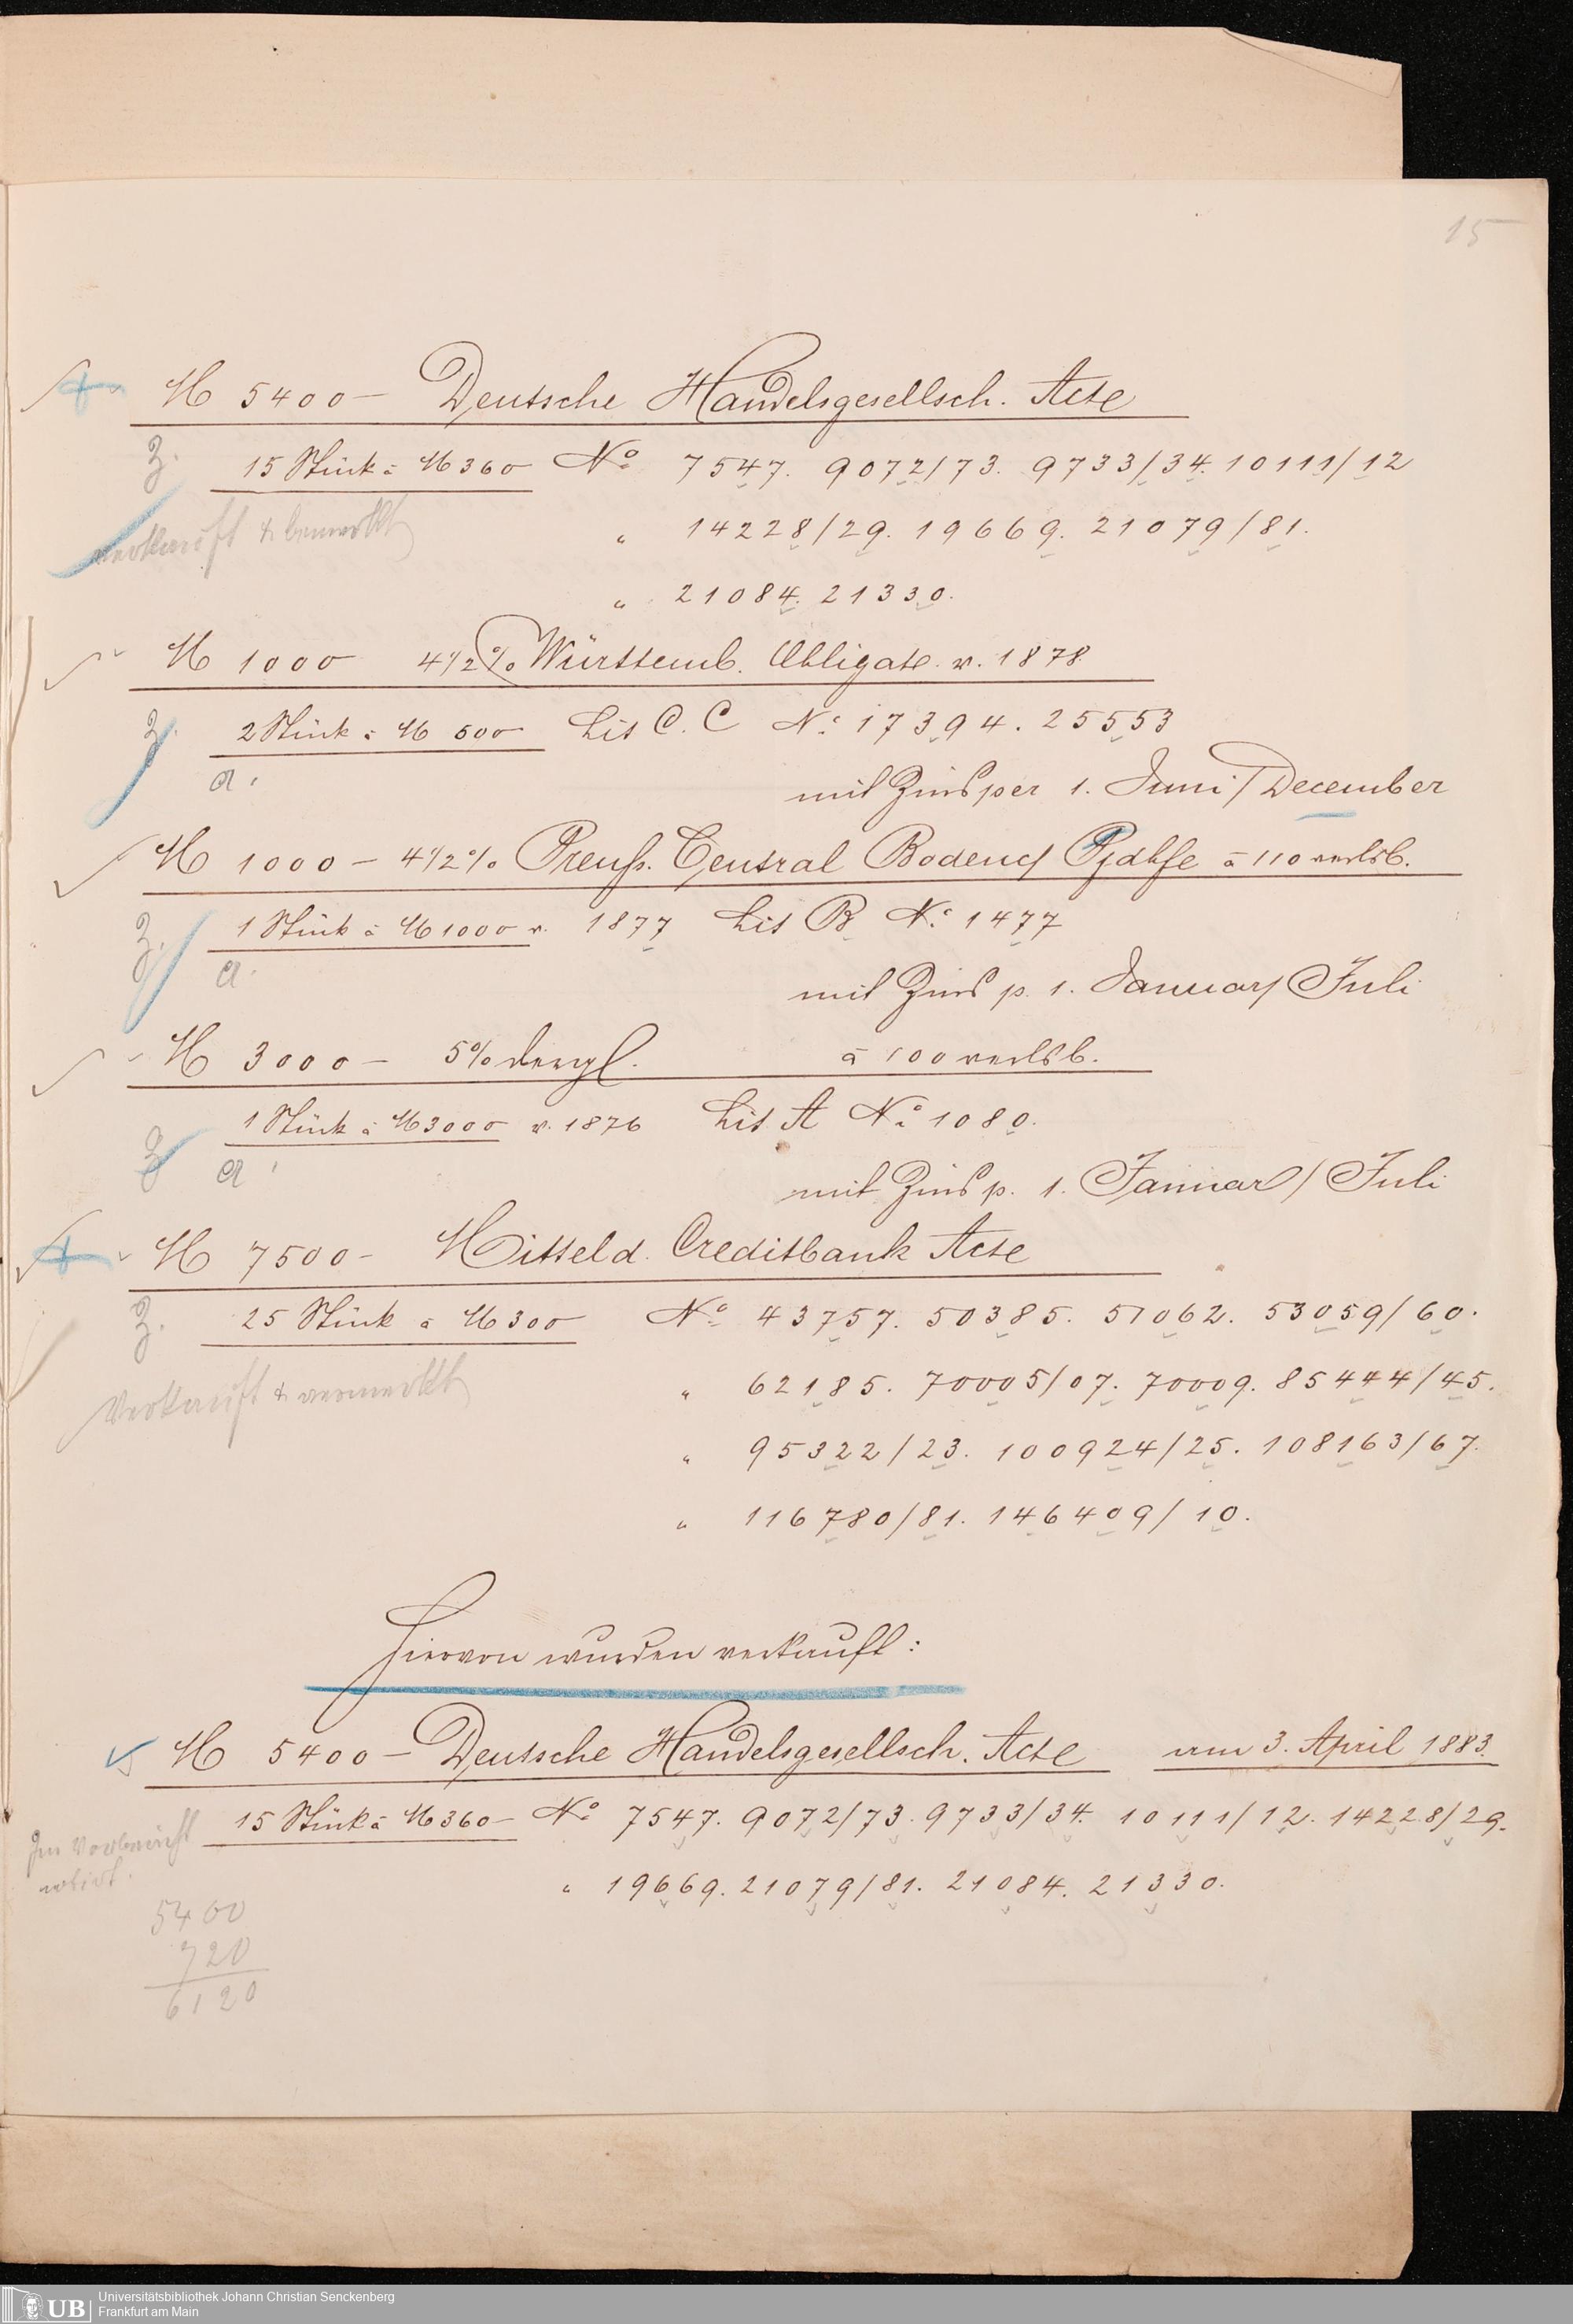 15
M 5400 – Deutsche Handelsgesellsch. Acte
Z. 15 Stück à M 360 No 7547. 9072/73. 9733/34. 10111/12
verkauft & bemerkt " 14228/29. 19669. 21079/81.
" 21084. 21330.
M 1000 4 1/2 % Württemb. Obligate v. 1878
Z. 2 Stück à M 500 Lit C. C No 17394. 25553
a. mit Zins per 1. Juni/December
M 1000 – 4 1/2 % Preuß. Central Bodencr Pfdbfe à 110 verlsb.
Z. 1 Stück à M 1000 v. 1877 Lit B No 1477
a. mit Zins p. 1. Januar/Juli
M 3000 – 5% dergl. à 100 verlsb.
Z 1 Stück à M 3000 v. 1876 Lit A No 1080.
a. mit Zins p. 1. Januar/Juli
M 7500 – Mitteld. Creditbank Acte
Z. 25 Stück à M 300 No 43757. 50385. 51062. 53059/60.
Verkauft & vermerkt " 62185. 70005/07. 70009. 85444/45.
" 95322/23. 100924/25. 108163/67.
" 116780/81. 146409/10.
Hiervon wurden verkauft:
M 5400 – Deutsche Handelsgesellsch. Acte am 3. April 1883.
15 Stück à M 360 – No 7547. 9072/73. 9733/34. 10111/12. 14228/29.
" 19669. 21079/81. 21084. 21330.
notirt.
5400
720
6120
UB Universitätsbibliothek Johann Christian Senckenberg
Frankfurt am Main